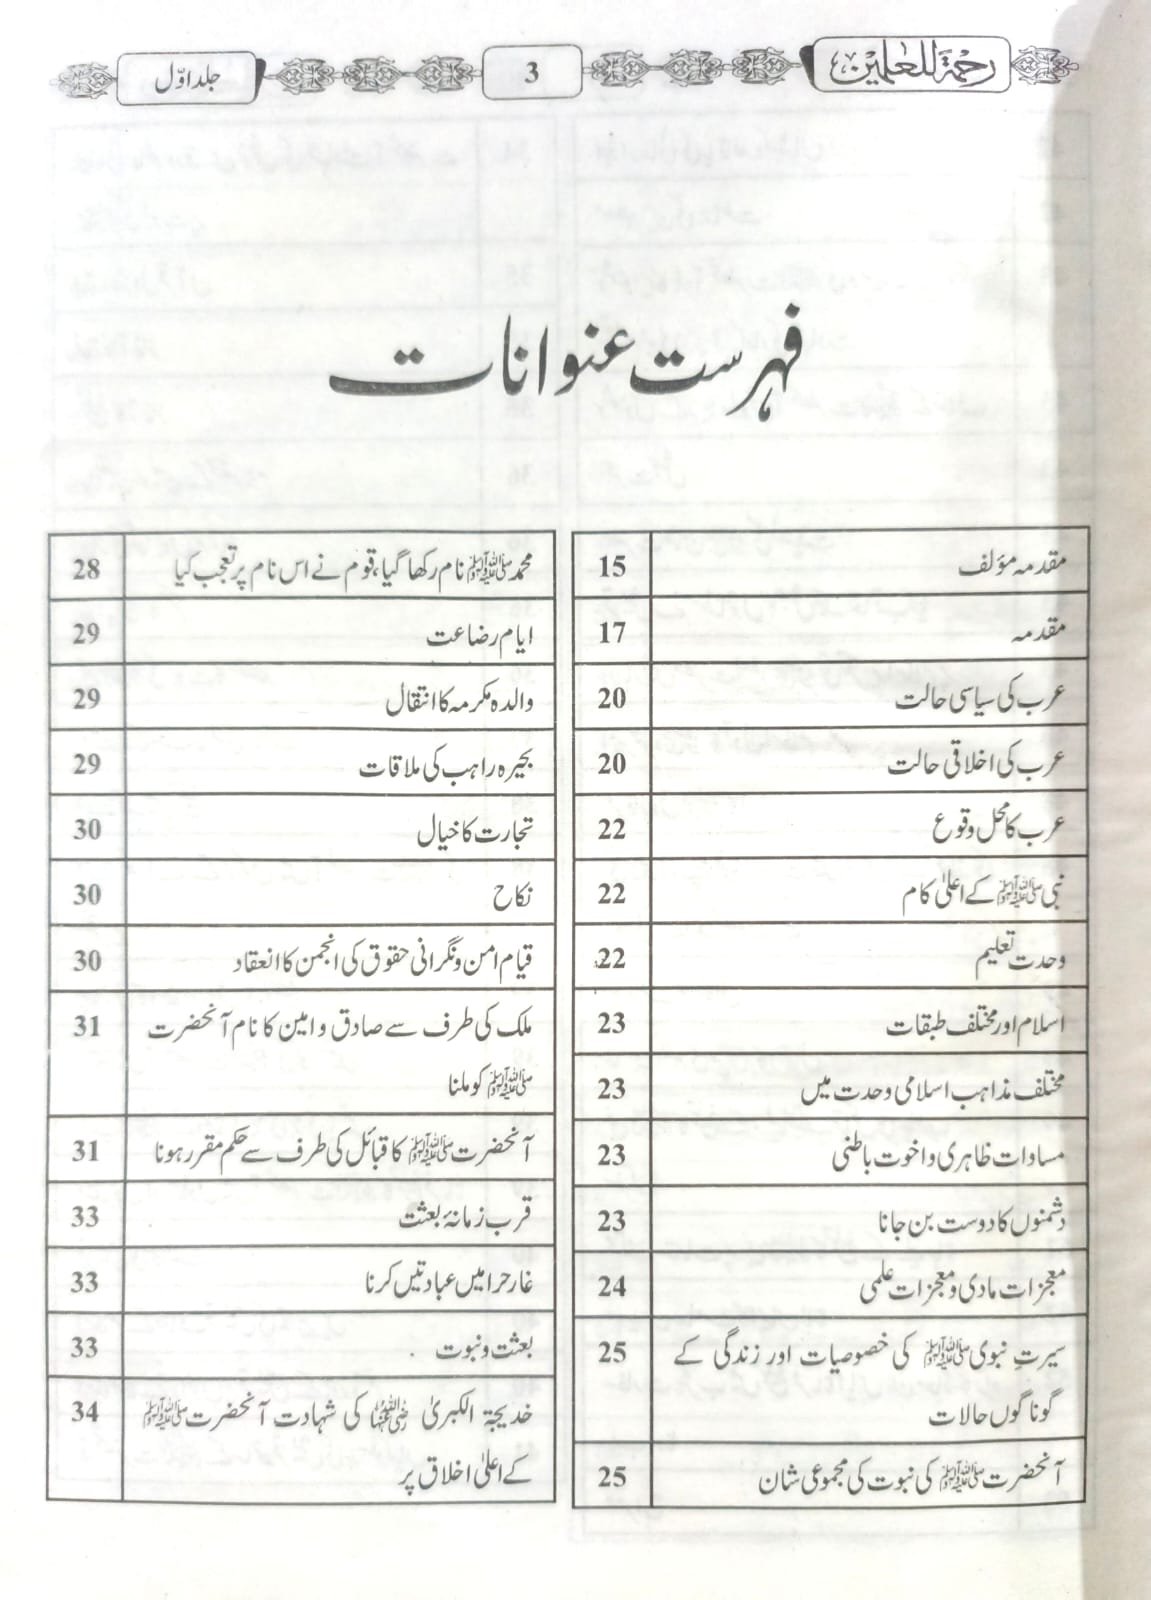 رحمۃ للعٰلمین
3
جلد اوّل
فہرست عنوانات
مقدمہ مؤلف 15
مقدمہ 17
عرب کی سیاسی حالت 20
عرب کی اخلاقی حالت 20
عرب کا محل وقوع 22
نبی ﷺ کے اعلیٰ کام 22
وحدت تعلیم 22
اسلام اور مختلف طبقات 23
مختلف مذاہب اسلامی وحدت میں 23
مساوات ظاہری و اخوت باطنی 23
دشمنوں کا دوست بن جانا 23
معجزات مادی و معجزات علمی 24
سیرتِ نبوی ﷺ کی خصوصیات اور زندگی کے 25
گوناگوں حالات
آنحضرت ﷺ کی نبوت کی مجموعی شان 25
محمد ﷺ نام رکھا گیا، قوم نے اس نام پر تعجب کیا 28
ایام رضاعت 29
والدہ مکرمہ کا انتقال 29
بحیرہ راہب کی ملاقات 29
تجارت کا خیال 30
نکاح 30
قیام امن و نگرانی حقوق کی انجمن کا انعقاد 30
ملک کی طرف سے صادق و امین کا نام آنحضرت 31
ﷺ کو ملنا
آنحضرت ﷺ کا قبائل کی طرف سے حکم مقرر ہونا 31
قرب زمانۂ بعثت 33
غار حرا میں عبادتیں کرنا 33
بعثت و نبوت 33
خدیجۃ الکبریٰ رضی اللہ عنہا کی شہادت آنحضرت ﷺ 34
کے اعلیٰ اخلاق پر